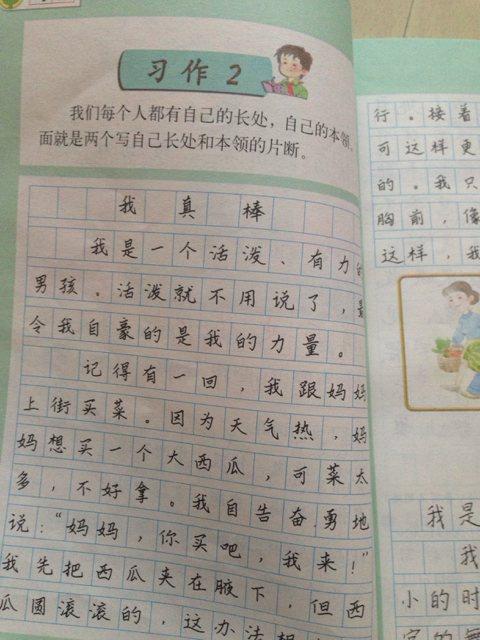 习作2
我们每个人都有自己的长处，自己的本领。
面就是两个写自己长处和本领的片断。
我真棒
我是一个活泼、有力的
男孩。活泼就不用说了，最
令我自豪的是我的力量。
记得有一回，我跟妈妈
上街买菜。因为天气热，妈
妈想买一个大西瓜，可菜太
多，不好拿。我自告奋勇地
说：“妈妈，你买吧，我来！”
我先把西瓜夹在腋下，但西
瓜圆滚滚的，这办法
行。接着
可这样更
的。我只
胸前，像
这样，我
我是
我
小的时